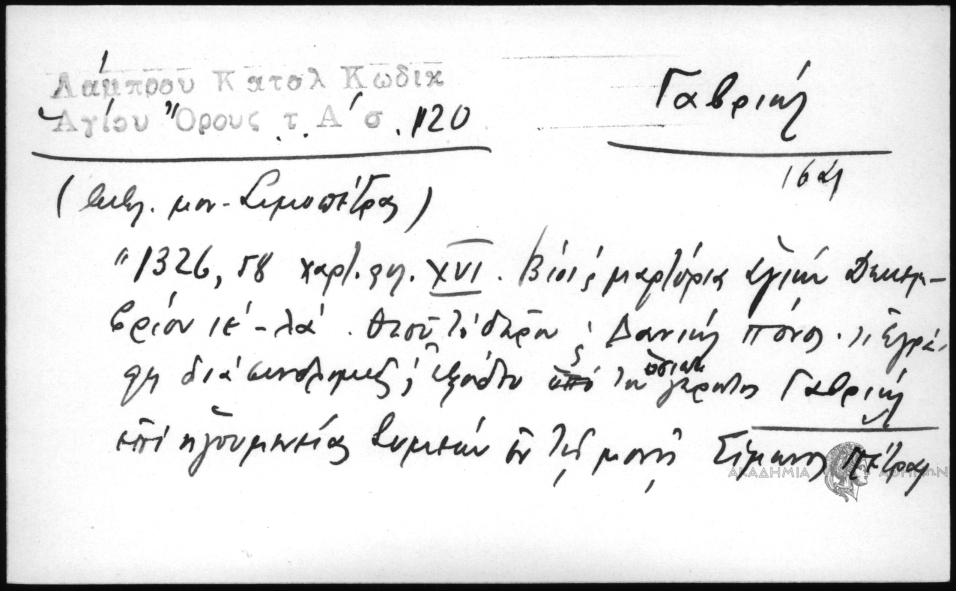 Λάμπρου Καταλ Κωδικ
Ἁγίου Ὄρους τ. Α΄ σ. 120
Γαβριήλ
1621
(βιβλ. μον. Σιμοπέτρας)
"1326, 58 χαρτ. φφ. XVI. Βίοι ς μαρτύρια ἁγίων Δεκεμ-
βρίου ιε΄-λα΄. Θεοῦ τὸ δῶρον ς Δανιὴλ πόνος. ἐγρά-
φη διὰ συνδρομῆς ς ἐξόδου τοῦ ὁσιωτ γέροντος Γαβριήλ
ἐπὶ ἡγουμενείας ἐν τῇ μονῇ Σίμωνος Πέτρας
ΑΚΑΔΗΜΙΑ ΑΘΗΝΩΝ